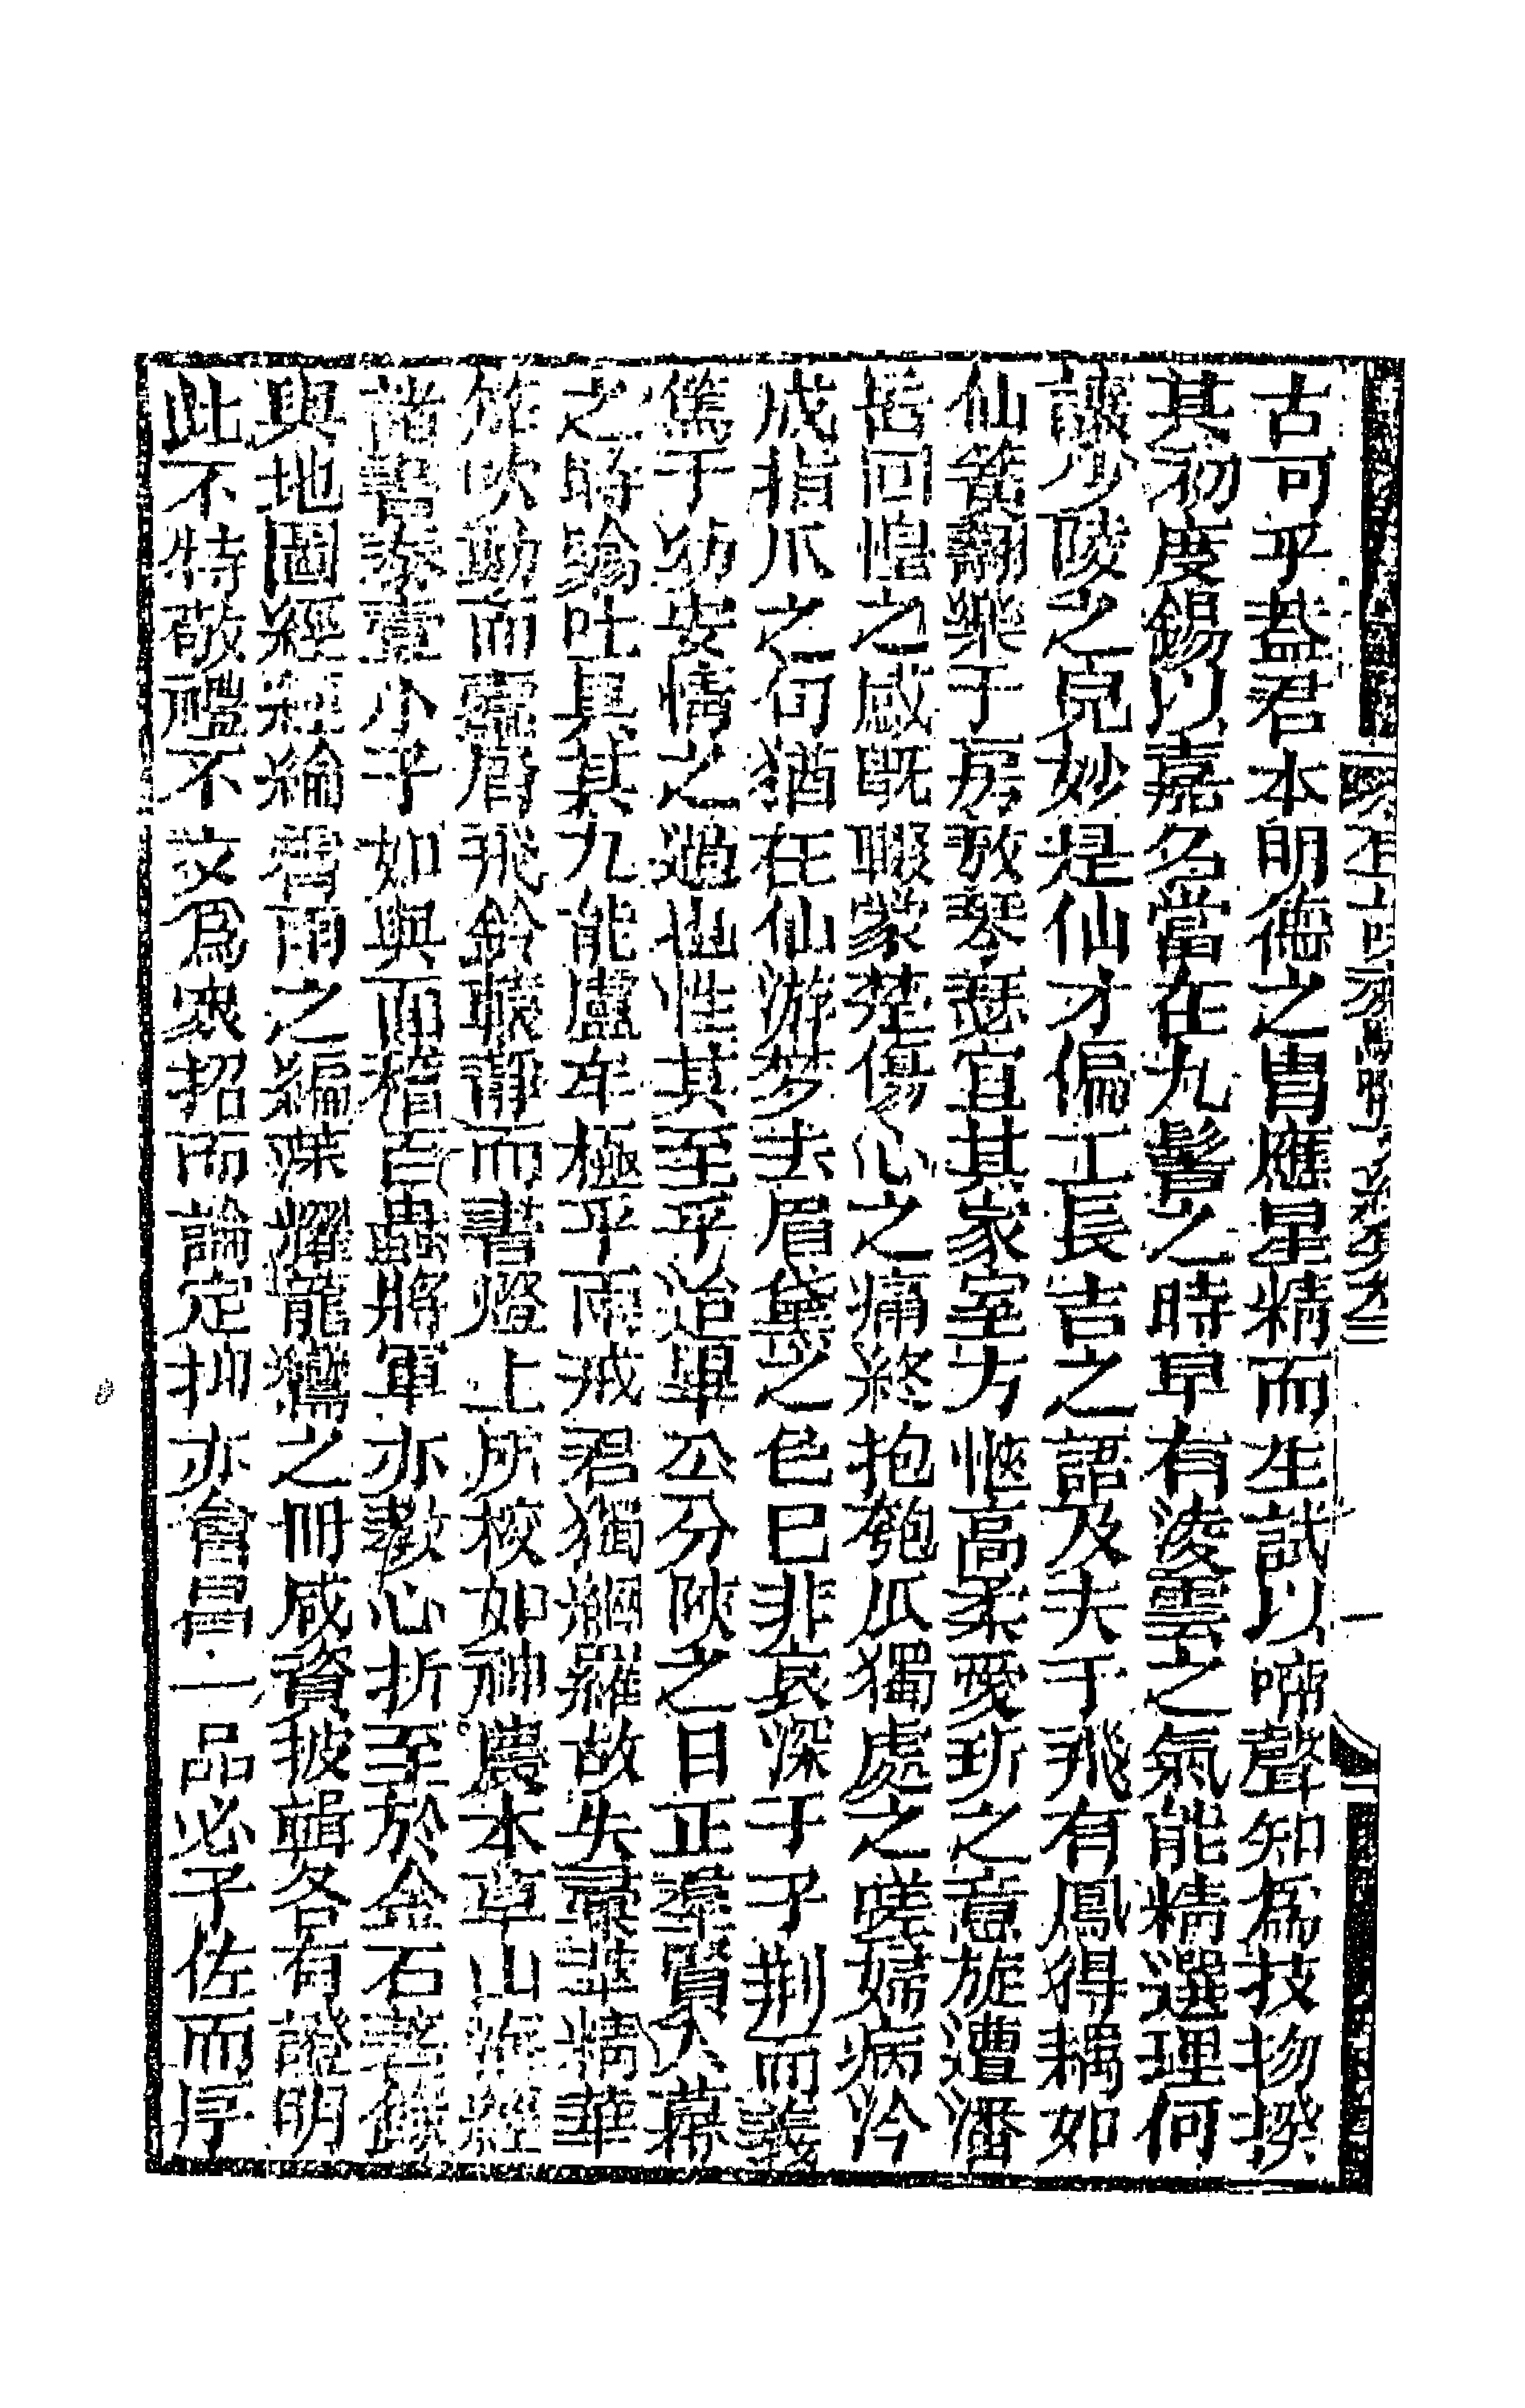 古可乎蓋君本明德之胄應星精而生試以啼聲知爲技物揆
其初度錫以嘉名當在九髫之時早有淩雲之氣能精選理何
讓少陵之兒妙是仙才偏工長吉之語及夫于飛有鳳得耦如
仙簧翻樂于房敖琴瑟宜其家室方愜高柔愛玩之意旋遭潘
岳回惶之感旣聯蒙楚傷心之痛終抱匏瓜獨處之嗟婦病泠
成指爪之句猶在仙游夢去眉黛之色巳非哀深于子荆而義
篤于幼安情之遒也性其至乎迨畢公分陝之日正羣賢入幕
之時錦吐具其九能盧牟極乎兩戒君獨網羅放失蒐輯精華
筦吹動而灰屑飛鈴聲靜而書燈上所校如神農本草山海經
諸書泰壹小子如與面稽百蟲將軍亦歡心折至於金石著錄
輿地圖經經綸雷雨之編藻燿龍鸞之冊咸資披輯各有證明
此不特敬禮不文爲衆招而論定抑亦會昌一品必予佐而序
一